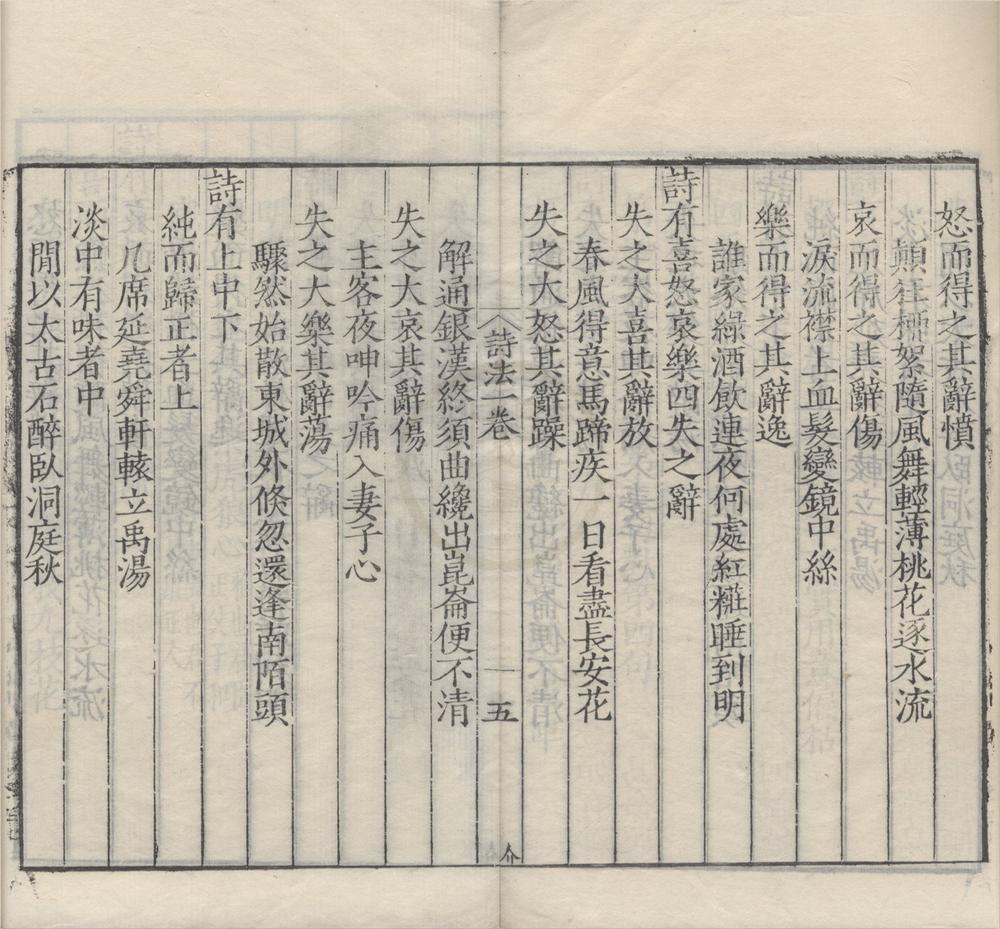 怒而得之其辭憤
顛狂柳絮隨風舞輕薄桃花逐水流
哀而得之其辭傷
淚流襟上血髮變鏡中絲
樂而得之其辭逸
誰家綠酒飲連夜何處紅糚睡到明
詩有喜怒哀樂四失之辭
失之大喜其辭放
春風得意馬蹄疾一日看盡長安花
失之大怒其辭躁
解通銀漢終須曲纔出崑崙便不清
詩法一卷
五
介
失之大哀其辭傷
主客夜呻吟痛入妻子心
失之大樂其辭蕩
驟然始散東城外倏忽還逢南陌頭
詩有上中下
純而歸正者上
几席延堯舜軒轅立禹湯
淡中有味者中
閒以太古石醉臥洞庭秋